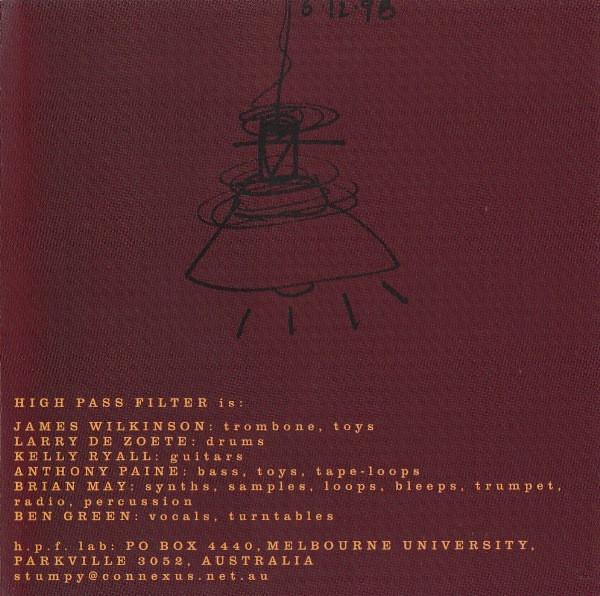 6.12.98
HIGH PASS FILTER is:
JAMES WILKINSON: trombone, toys
LARRY DE ZOETE: drums
KELLY RYALL: guitars
ANTHONY PAINE: bass, toys, tape-loops
BRIAN MAY: synths, samples, loops, bleeps, trumpet,
radio, percussion
BEN GREEN: vocals, turntables
h.p.f. lab: PO BOX 4440, MELBOURNE UNIVERSITY,
PARKVILLE 3052, AUSTRALIA
stumpy@connexus.net.au